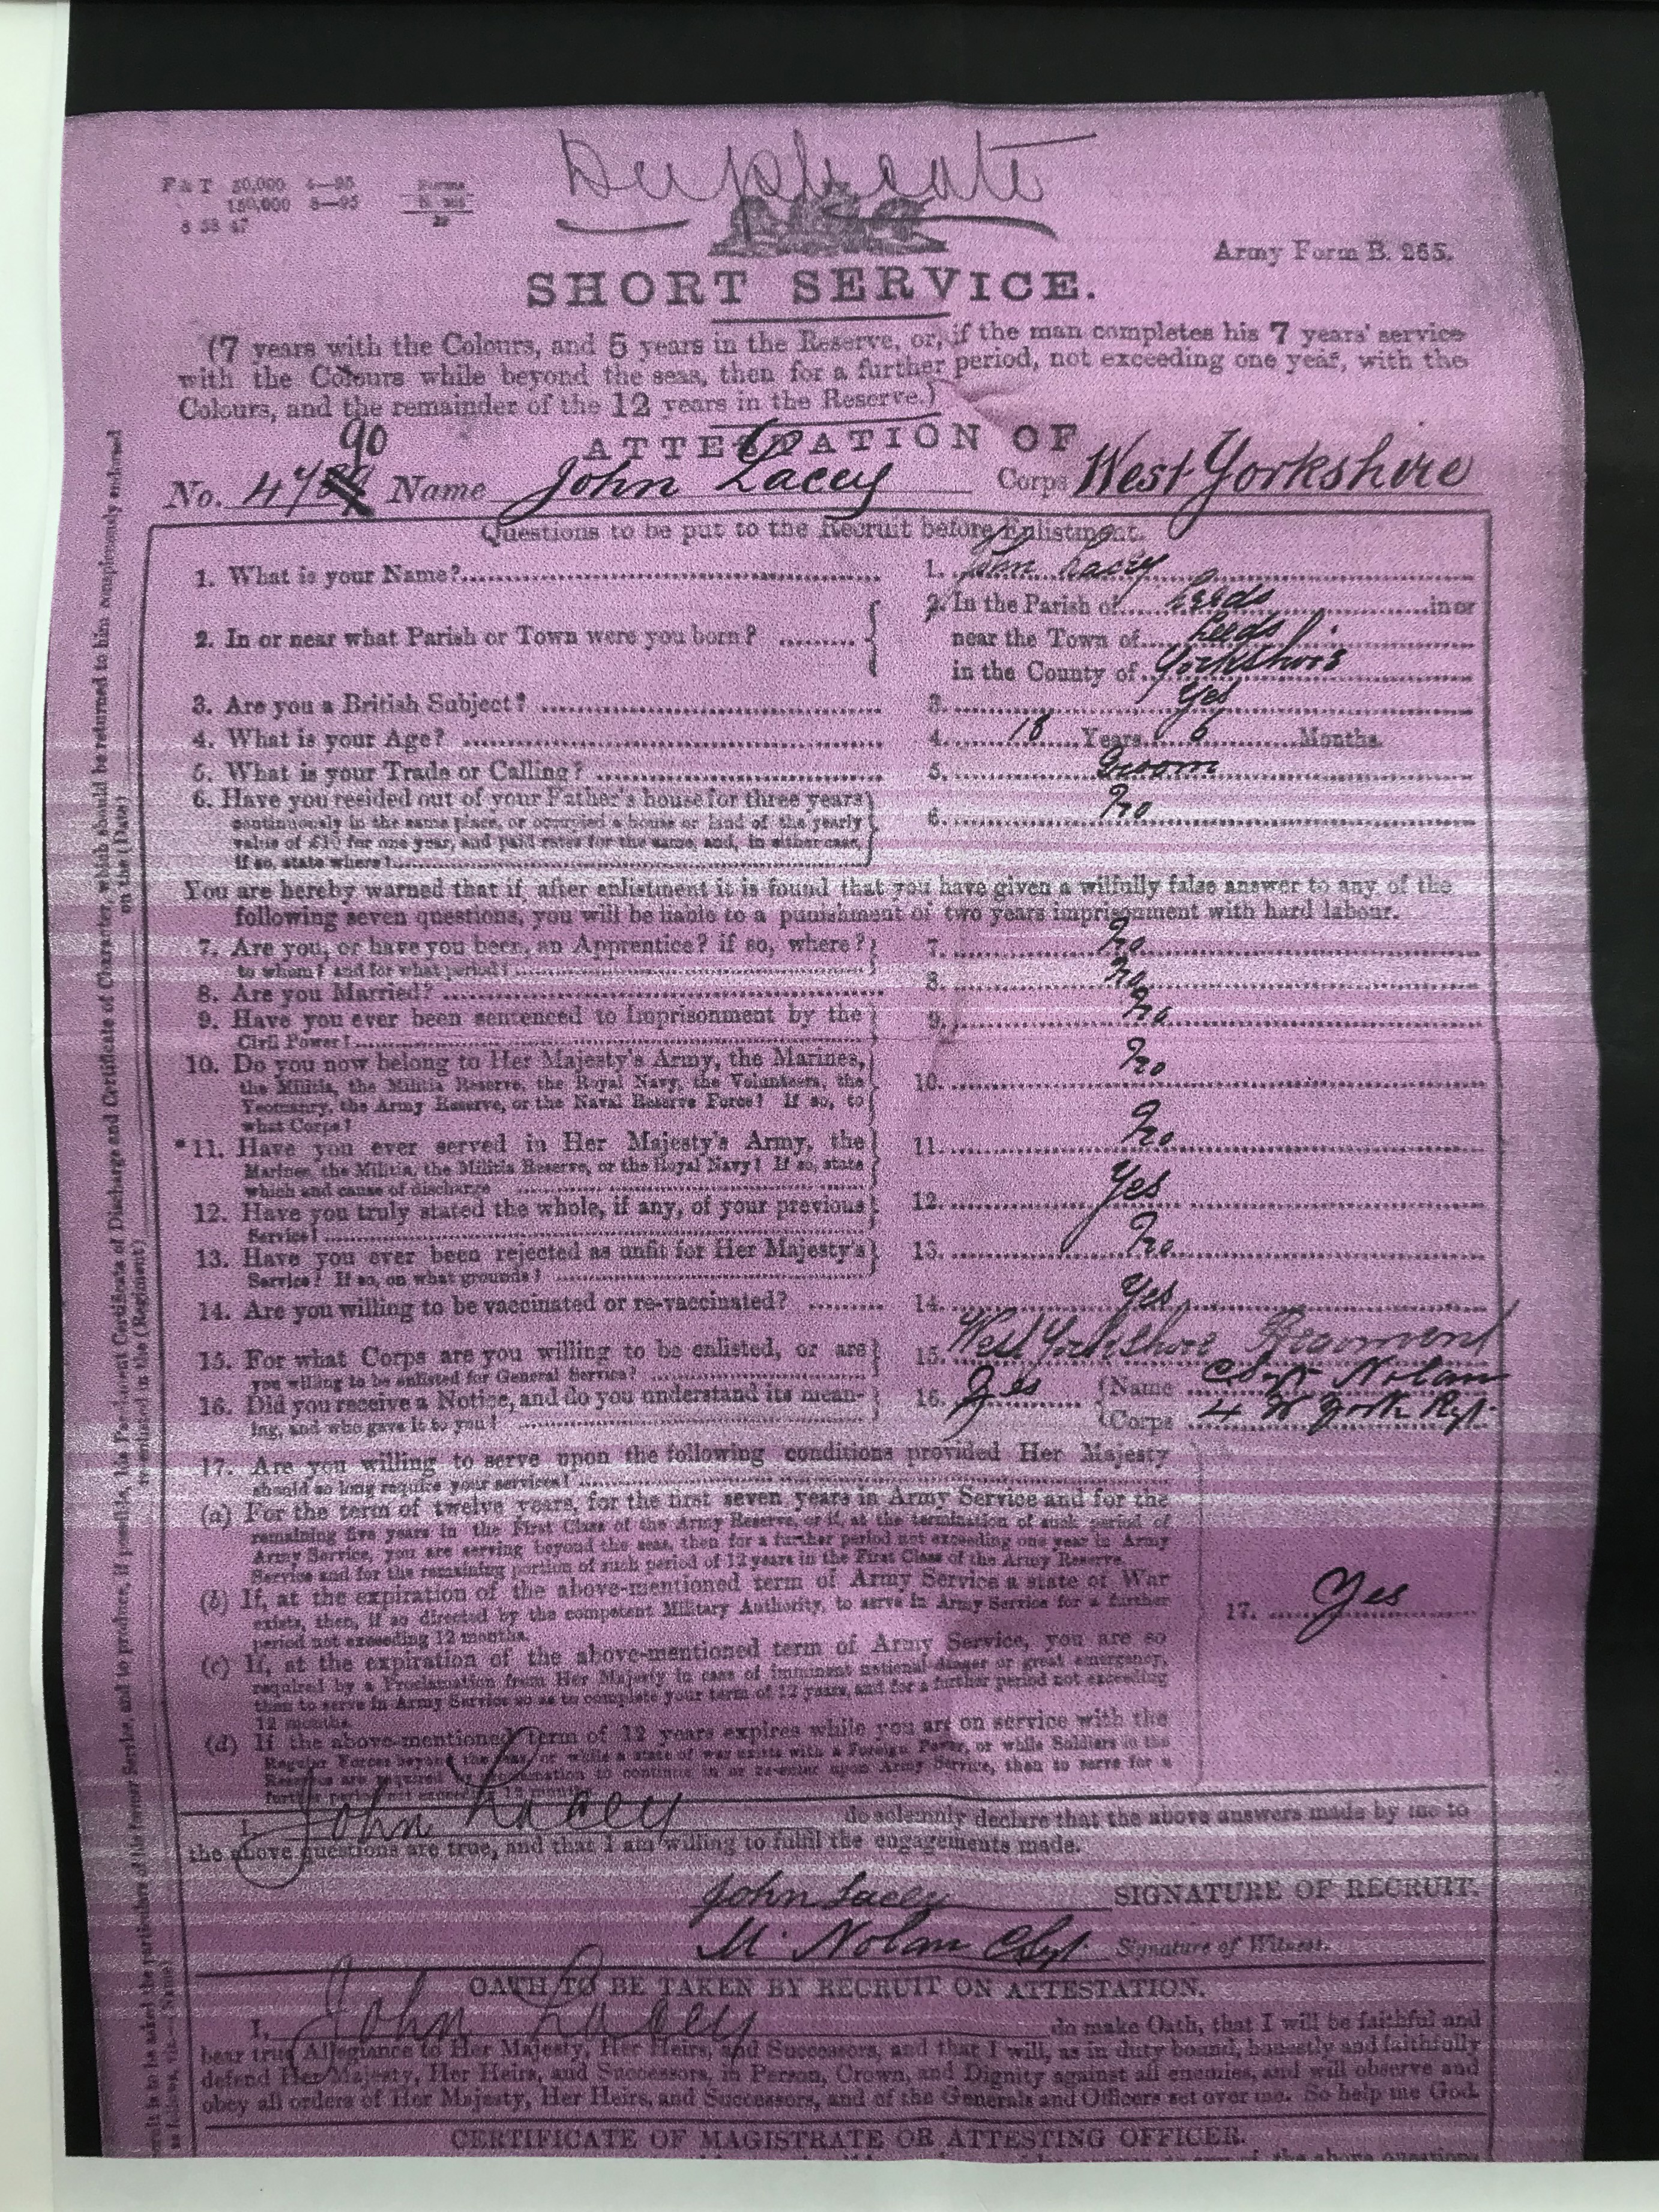 Duplicate
F & T 50,000 4—95
150,000 8—95
Forms
Army Form B. 265.
SHORT SERVICE.
(7 years with the Colours, and 5 years in the Reserve, or, if the man completes his 7 years' service
with the Colours while beyond the seas, then for a further period, not exceeding one year, with the
Colours, and the remainder of the 12 years in the Reserve.)
ATTESTATION OF
90
No. 47 Name John Lacey Corps West Yorkshire
Questions to be put to the Recruit before Enlistment.
1. What is your Name? 1. John Lacey
2. In or near what Parish or Town were you born? 2. In the Parish of Leeds in or
near the Town of Leeds
in the County of Yorkshire
3. Are you a British Subject? 3. Yes
4. What is your Age? 4. 18 Years 6 Months.
5. What is your Trade or Calling? 5. Groom
6. Have you resided out of your Father's house for three years 6. No
continuously in the same place, or occupied a house or land of the yearly
value of £10 for one year, and paid rates for the same, and, in either case,
if so, state where?
You are hereby warned that if after enlistment it is found that you have given a wilfully false answer to any of the
following seven questions, you will be liable to a punishment of two years imprisonment with hard labour.
7. Are you, or have you been, an Apprentice? if so, where? 7. No
to whom? and for what period?
8. Are you Married? 8. No
9. Have you ever been sentenced to Imprisonment by the 9. No
Civil Power?
10. Do you now belong to Her Majesty's Army, the Marines, 10. No
the Militia, the Militia Reserve, the Royal Navy, the Volunteers, the
Yeomanry, the Army Reserve, or the Naval Reserve Force? If so, to
what Corps?
*11. Have you ever served in Her Majesty's Army, the 11. No
Marines, the Militia, the Militia Reserve, or the Royal Navy? If so, state
which and cause of discharge
12. Have you truly stated the whole, if any, of your previous 12. Yes
Service?
13. Have you ever been rejected as unfit for Her Majesty's 13. No
Service? If so, on what grounds?
14. Are you willing to be vaccinated or re-vaccinated? 14. Yes
15. For what Corps are you willing to be enlisted, or are 15. West Yorkshire Regiment
you willing to be enlisted for General Service?
16. Did you receive a Notice, and do you understand its mean- 16. Yes Name CSgt Nolan
ing, and who gave it to you? Corps 4 W York Rgt.
17. Are you willing to serve upon the following conditions provided Her Majesty
should so long require your services?
(a) For the term of twelve years, for the first seven years in Army Service and for the
remaining five years in the First Class of the Army Reserve, or if, at the termination of such period of
Army Service, you are serving beyond the seas, then for a further period not exceeding one year in Army
Service and for the remaining portion of such period of 12 years in the First Class of the Army Reserve.
(b) If, at the expiration of the above-mentioned term of Army Service a state of War
exists, then, if so directed by the competent Military Authority, to serve in Army Service for a further
period not exceeding 12 months.
17. Yes
(c) If, at the expiration of the above-mentioned term of Army Service, you are so
required by a Proclamation from Her Majesty in case of imminent national danger or great emergency,
then to serve in Army Service so as to complete your term of 12 years, and for a further period not exceeding
12 months.
(d) If the above-mentioned term of 12 years expires while you are on service with the
Regular Forces beyond the Seas, or while a state of war exists with a Foreign Power, or while Soldiers in the
Reserve are required by Proclamation to continue in or re-enter upon Army Service, then to serve for a
further period not exceeding 12 months.
I, John Lacey do solemnly declare that the above answers made by me to
the above questions are true, and that I am willing to fulfil the engagements made.
John Lacey SIGNATURE OF RECRUIT.
M. Nolan CSgt. Signature of Witness.
OATH TO BE TAKEN BY RECRUIT ON ATTESTATION.
I, John Lacey do make Oath, that I will be faithful and
bear true Allegiance to Her Majesty, Her Heirs, and Successors, and that I will, as in duty bound, honestly and faithfully
defend Her Majesty, Her Heirs, and Successors, in Person, Crown, and Dignity against all enemies, and will observe and
obey all orders of Her Majesty, Her Heirs, and Successors, and of the Generals and Officers set over me. So help me God.
CERTIFICATE OF MAGISTRATE OR ATTESTING OFFICER.
the above questions
is to be asked the particulars of his former Service, and to produce, if possible, his Parchment Certificate of Discharge and Certificate of Character, which should be returned to him conspicuously endorsed
as follows, viz.—(Name) re-enlisted in the (Regiment) on the (Date)